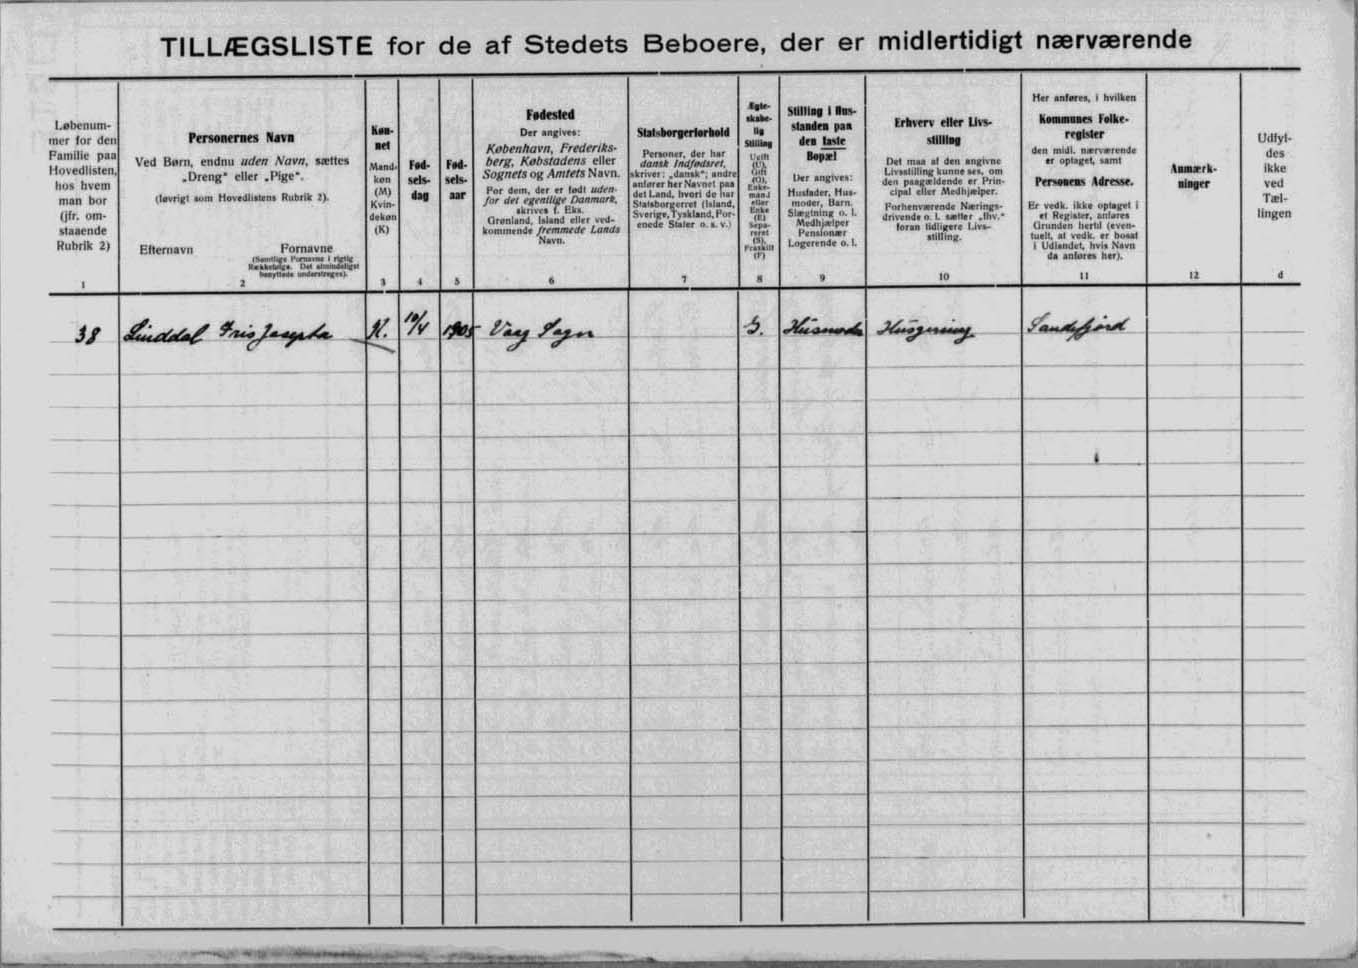 TILLÆGSLISTE for de af Stedets Beboere, der er midlertidigt nærværende
Løbenum-
mer for den
Familie paa
Hovedlisten,
hos hvem
man bor
(jfr. om-
staaende
Rubrik 2)
1
Personernes Navn
Ved Børn, endnu uden Navn, sættes
„Dreng“ eller „Pige“.
(Iøvrigt som Hovedlistens Rubrik 2).
Efternavn Fornavne
(Samtlige Fornavne i rigtig
Rækkefølge. Det almindeligst
benyttede understreges).
2
Køn-
net
Mand-
køn
(M)
Kvin-
dekøn
(K)
3
Fød-
sels-
dag
4
Fød-
sels-
aar
5
Fødested
Der angives:
København, Frederiks-
berg, Købstadens eller
Sognets og Amtets Navn.
For dem, der er født uden-
for det egentlige Danmark,
skrives f. Eks.
Grønland, Island eller ved-
kommende fremmede Lands
Navn.
6
Statsborgerforhold
Personer, der har
dansk Indfødsret,
skriver: „dansk“; andre
anfører her Navnet paa
det Land, hvori de har
Statsborgerret (Island,
Sverige, Tyskland, For-
enede Stater o. s. v.)
7
Ægte-
skabe-
lig
Stilling
Ugift
(U),
Gift
(G),
Enke-
mand
eller
Enke
(E)
Sepa-
reret
(S),
Fraskilt
(F)
8
Stilling i Hus-
standen paa
den faste
Bopæl
Der angives:
Husfader, Hus-
moder, Barn,
Slægtning o. l.
Medhjælper
Pensionær
Logerende o. l.
9
Erhverv eller Livs-
stilling
Det maa af den angivne
Livsstilling kunne ses, om
den paagældende er Prin-
cipal eller Medhjælper.
Forhenværende Nærings-
drivende o. l. sætter „fhv.“
foran tidligere Livs-
stilling.
10
Her anføres, i hvilken
Kommunes Folke-
register
den midl. nærværende
er optaget, samt
Personens Adresse.
Er vedk. ikke optaget i
et Register, anføres
Grunden hertil (even-
tuelt, at vedk. er bosat
i Udlandet, hvis Navn
da anføres her).
11
Anmærk-
ninger
12
Udfyl-
des
ikke
ved
Tæl-
lingen
d
38 Linddal Fris Josepha K. 10/4 1905 Vaag Sogn G. Husmoder Husgerning Sandefjord